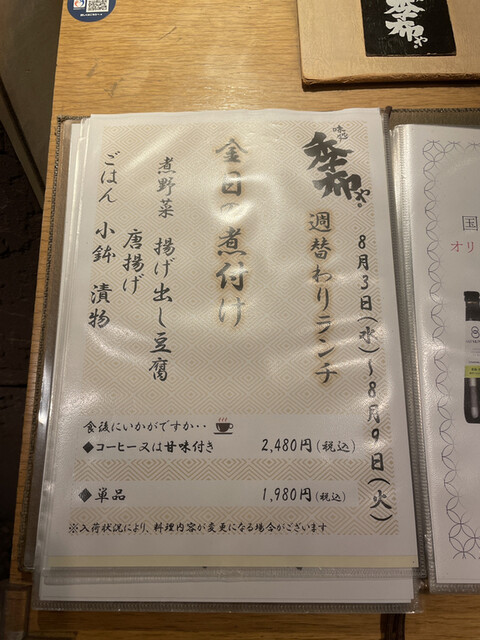 季布や
味心
季布や
週替わりランチ
8月3日(水)～8月9日(火)
金目の煮付け
煮野菜 揚げ出し豆腐
唐揚げ
ごはん 小鉢 漬物
食後にいかがですか・・
◆コーヒー又は甘味付き 2,480円(税込)
◆単品 1,980円(税込)
※入荷状況により、料理内容が変更になる場合がございます
国
オリ